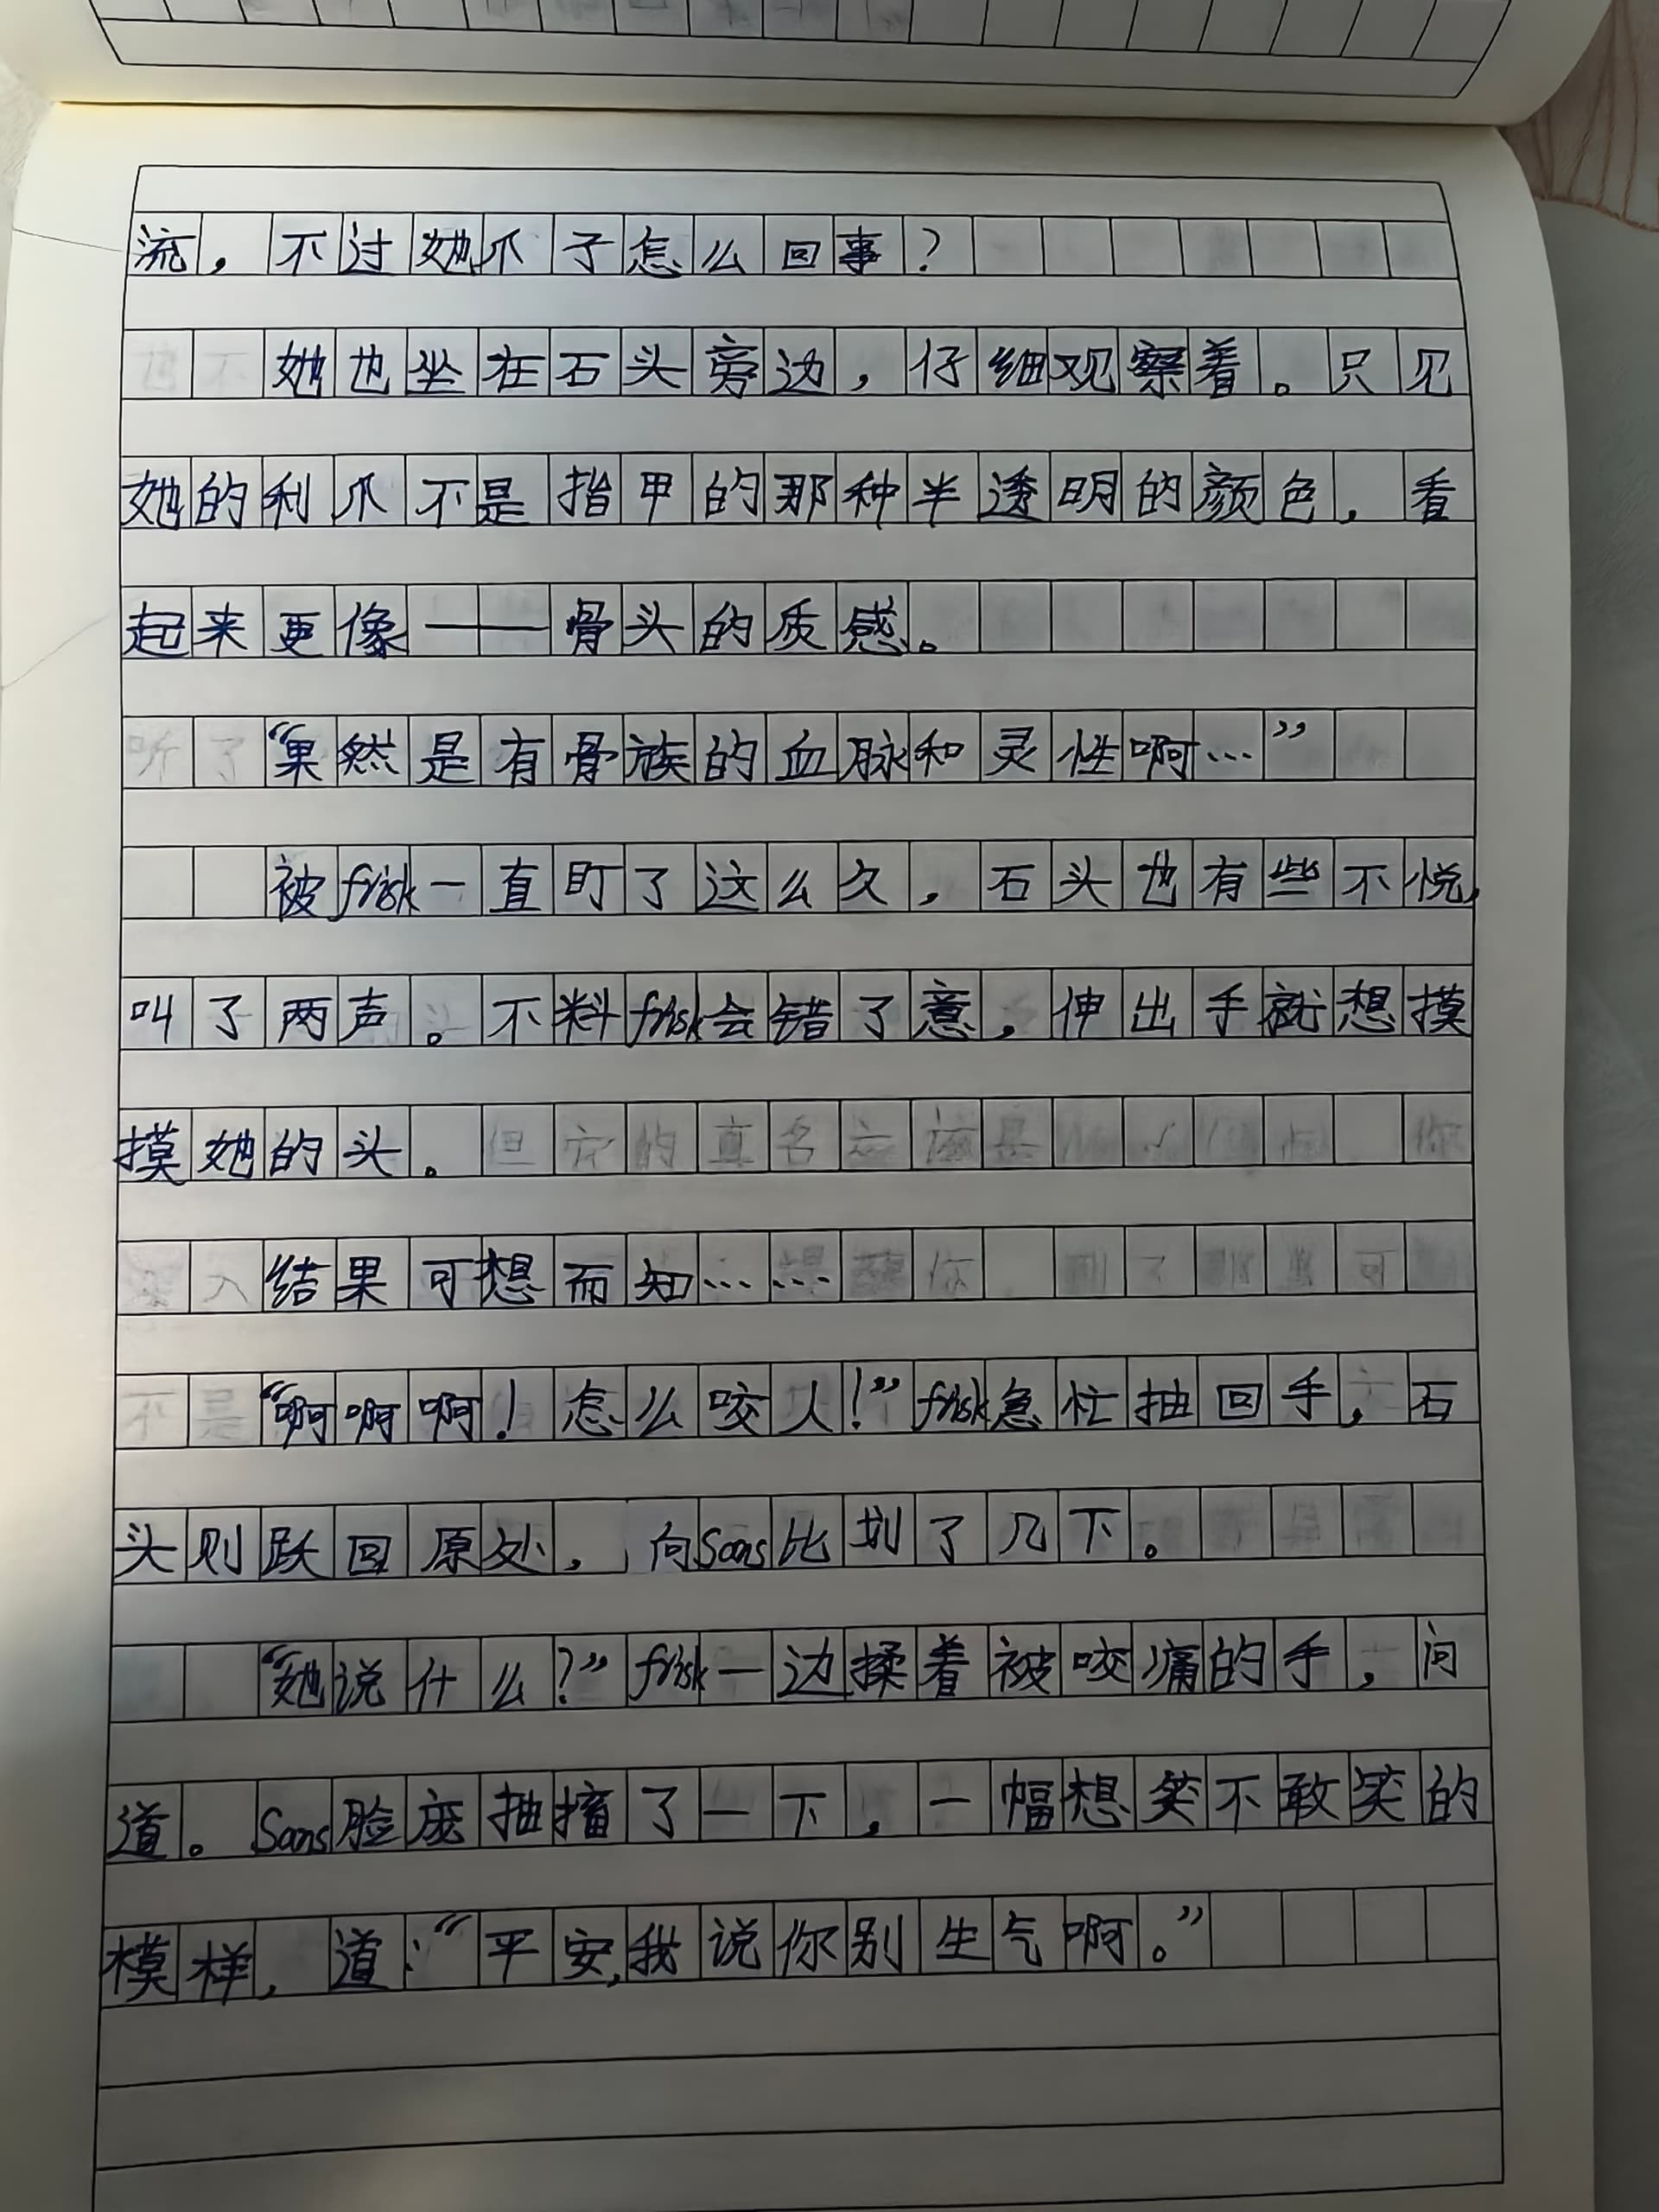 流，不过她爪子怎么回事？
她也坐在石头旁边，仔细观察着。只见
她的利爪不是指甲的那种半透明的颜色，看
起来更像——骨头的质感。
“果然是有骨族的血脉和灵性啊…”
被frisk一直盯了这么久，石头也有些不悦，
叫了两声。不料frisk会错了意，伸出手就想摸
摸她的头。
结果可想而知……
“啊啊啊！怎么咬人！”frisk急忙抽回手，石
头则跃回原处，向Sans比划了几下。
“她说什么？”frisk一边揉着被咬痛的手，问
道。Sans脸庞抽搐了一下，一幅想笑不敢笑的
模样，道：“平安，我说你别生气啊。”